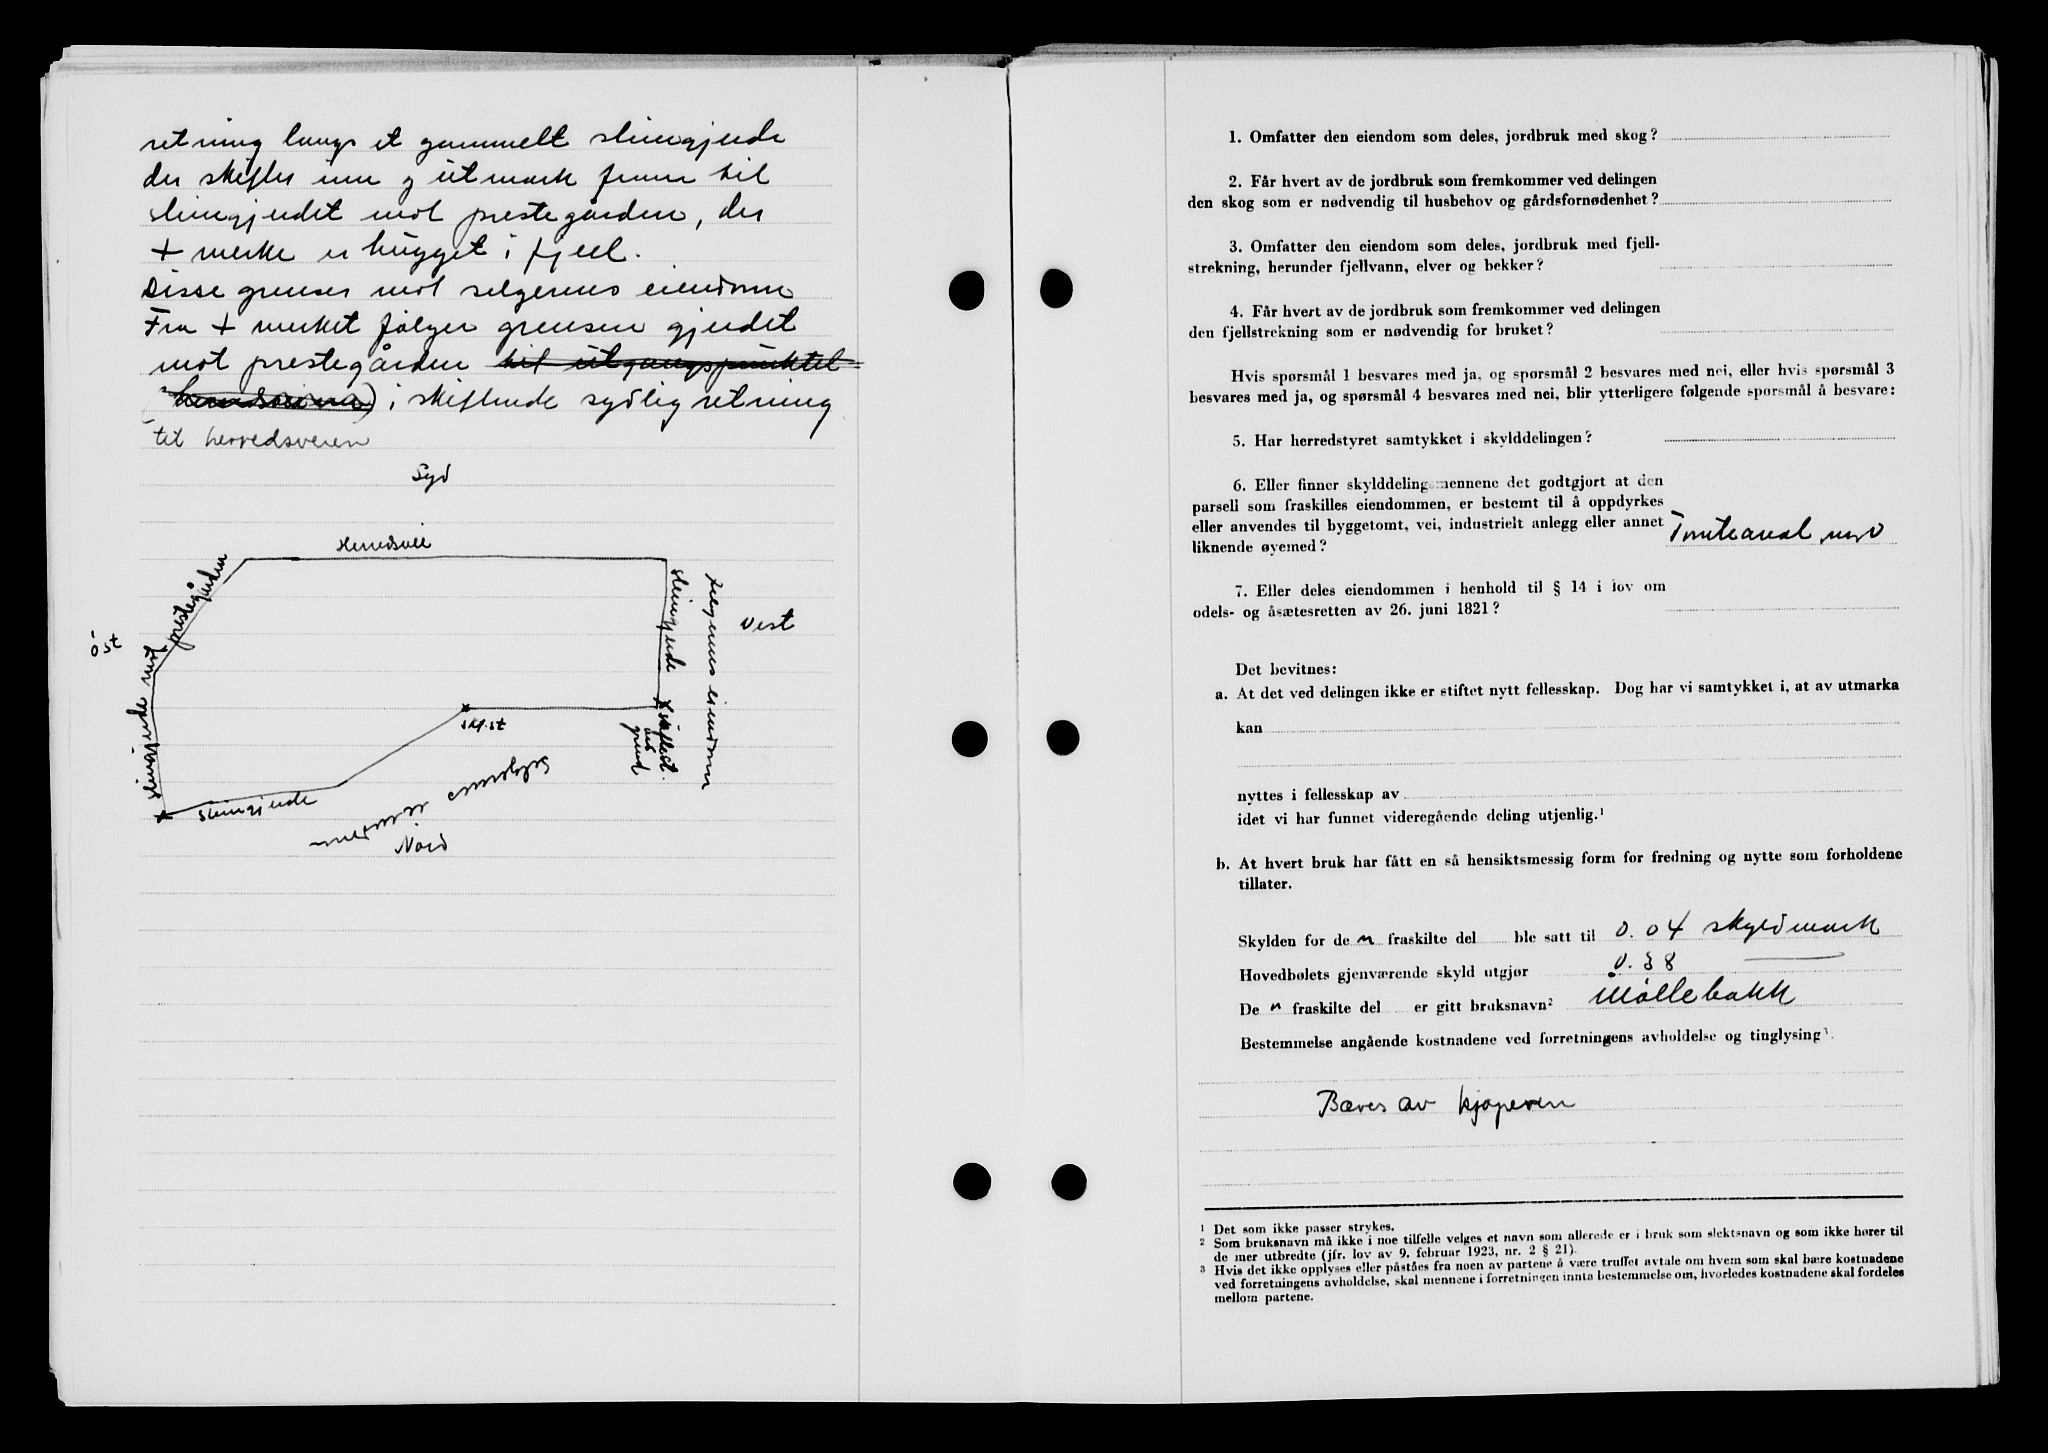 retning langs et gammelt steingjerde
der skifter inn og utmark fram til
steingjerdet mot prestegården, der
+ merke er hugget i fjell.
Disse grenser mot selgernes eiendom
Fra + merket følger grensen gjerdet
mot prestegården til utgangspunktet
i skiftende sydlig retning
til herredsveien
Syd
Herredsvei
steingjerde mot prestegården
steingjerde
selgernes eiendom
Vest
øst
skf.st
steingjerde
Nord
1. Omfatter den eiendom som deles, jordbruk med skog?
2. Får hvert av de jordbruk som fremkommer ved delingen
den skog som er nødvendig til husbehov og gårdsfornødenhet?
3. Omfatter den eiendom som deles, jordbruk med fjell-
strekning, herunder fjellvann, elver og bekker?
4. Får hvert av de jordbruk som fremkommer ved delingen
den fjellstrekning som er nødvendig for bruket?
Hvis spørsmål 1 besvares med ja, og spørsmål 2 besvares med nei, eller hvis spørsmål 3
besvares med ja, og spørsmål 4 besvares med nei, blir ytterligere følgende spørsmål å besvare:
5. Har herredstyret samtykket i skylddelingen?
6. Eller finner skylddelingsmennene det godtgjort at den
parsell som fraskilles eiendommen, er bestemt til å oppdyrkes
eller anvendes til byggetomt, vei, industrielt anlegg eller annet
liknende øyemed? Tomteareal
7. Eller deles eiendommen i henhold til § 14 i lov om
odels- og åsætesretten av 26. juni 1821?
Det bevitnes:
a. At det ved delingen ikke er stiftet nytt fellesskap. Dog har vi samtykket i, at av utmarka
kan
nyttes i fellesskap av
idet vi har funnet videregående deling utjenlig.¹
b. At hvert bruk har fått en så hensiktsmessig form for fredning og nytte som forholdene
tillater.
Skylden for de n fraskilte del ble satt til 0.04 skyldmark
Hovedbølets gjenværende skyld utgjør 0.38
De n fraskilte del er gitt bruksnavn² Møllebakk
Bestemmelse angående kostnadene ved forretningens avholdelse og tinglysing³.
Bæres av kjøperen
¹ Det som ikke passer strykes.
² Som bruksnavn må ikke i noe tilfelle velges et navn som allerede er i bruk som slektsnavn og som ikke hører til
de mer utbredte (jfr. lov av 9. februar 1923, nr. 2 § 21).
³ Hvis det ikke opplyses eller påståes fra noen av partene å være truffet avtale om hvem som skal bære kostnadene
ved forretningens avholdelse, skal mennene i forretningen innta bestemmelse om, hvorledes kostnadene skal fordeles
mellom partene.